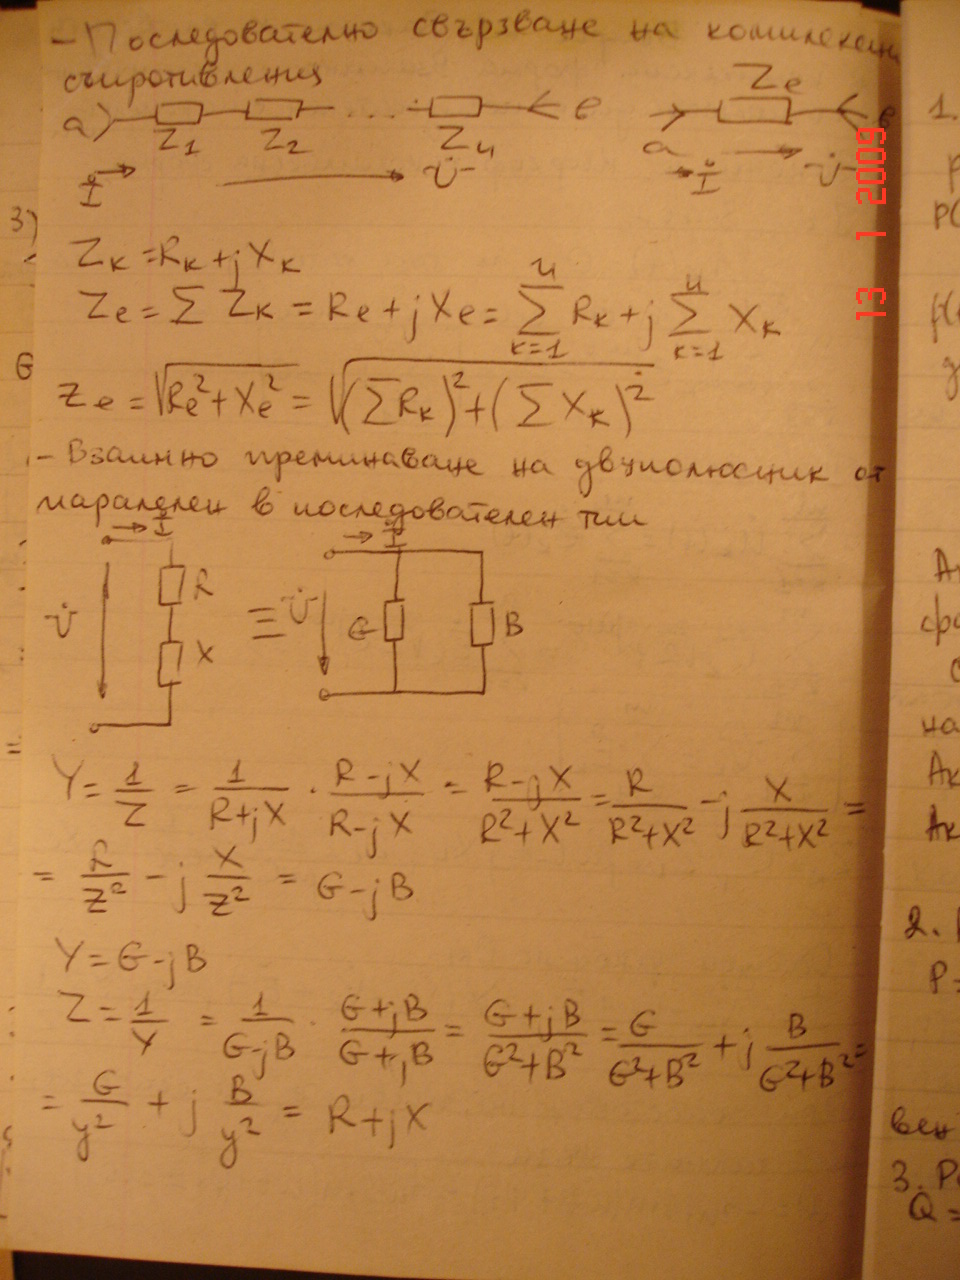 - Последователно свързване на комплексни
съпротивления
a Z1 Z2 .... Zn в Ze
İ U̇ a İ U̇ в
13 1 2009
Zк = Rк + jXк
Ze = Σ Zк = Re + jXe = Σ(к=1, n) Rк + j Σ(к=1, n) Xк
Ze = √(Re² + Xe²) = √((ΣRк)² + (ΣXк)²)
- Взаимно преминаване на двуполюсник от
паралелен в последователен тип
İ İ
U̇ R X ≡ U̇ G B
Y = 1/Z = 1/(R+jX) · (R-jX)/(R-jX) = (R-jX)/(R²+X²) = R/(R²+X²) - j X/(R²+X²) =
= R/Z² - j X/Z² = G-jB
Y = G-jB
Z = 1/Y = 1/(G-jB) · (G+jB)/(G+jB) = (G+jB)/(G²+B²) = G/(G²+B²) + j B/(G²+B²) =
= G/y² + j B/y² = R+jX
1.
2.
P=
3.
Q=